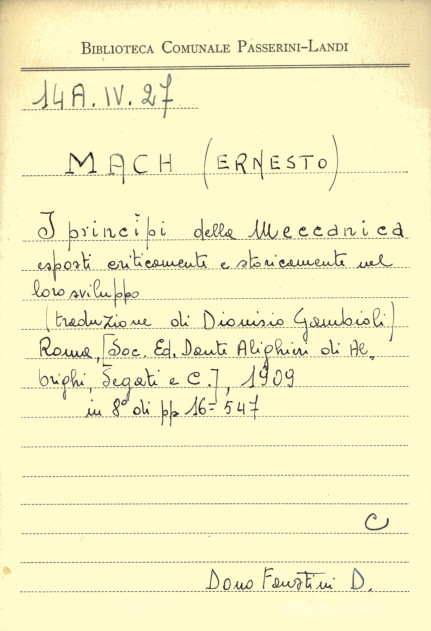 BIBLIOTECA COMUNALE PASSERINI-LANDI
14A.IV.27
MACH (ERNESTO)
I principi della Meccanica
esposti criticamente e storicamente nel
loro sviluppo
(traduzione di Dionisio Gambioli)
Roma, [Soc. Ed. Dante Alighieri di Al-
brighi, Segati e C.], 1909
in 8° di pp 16=547
C
Dono Faustini D.